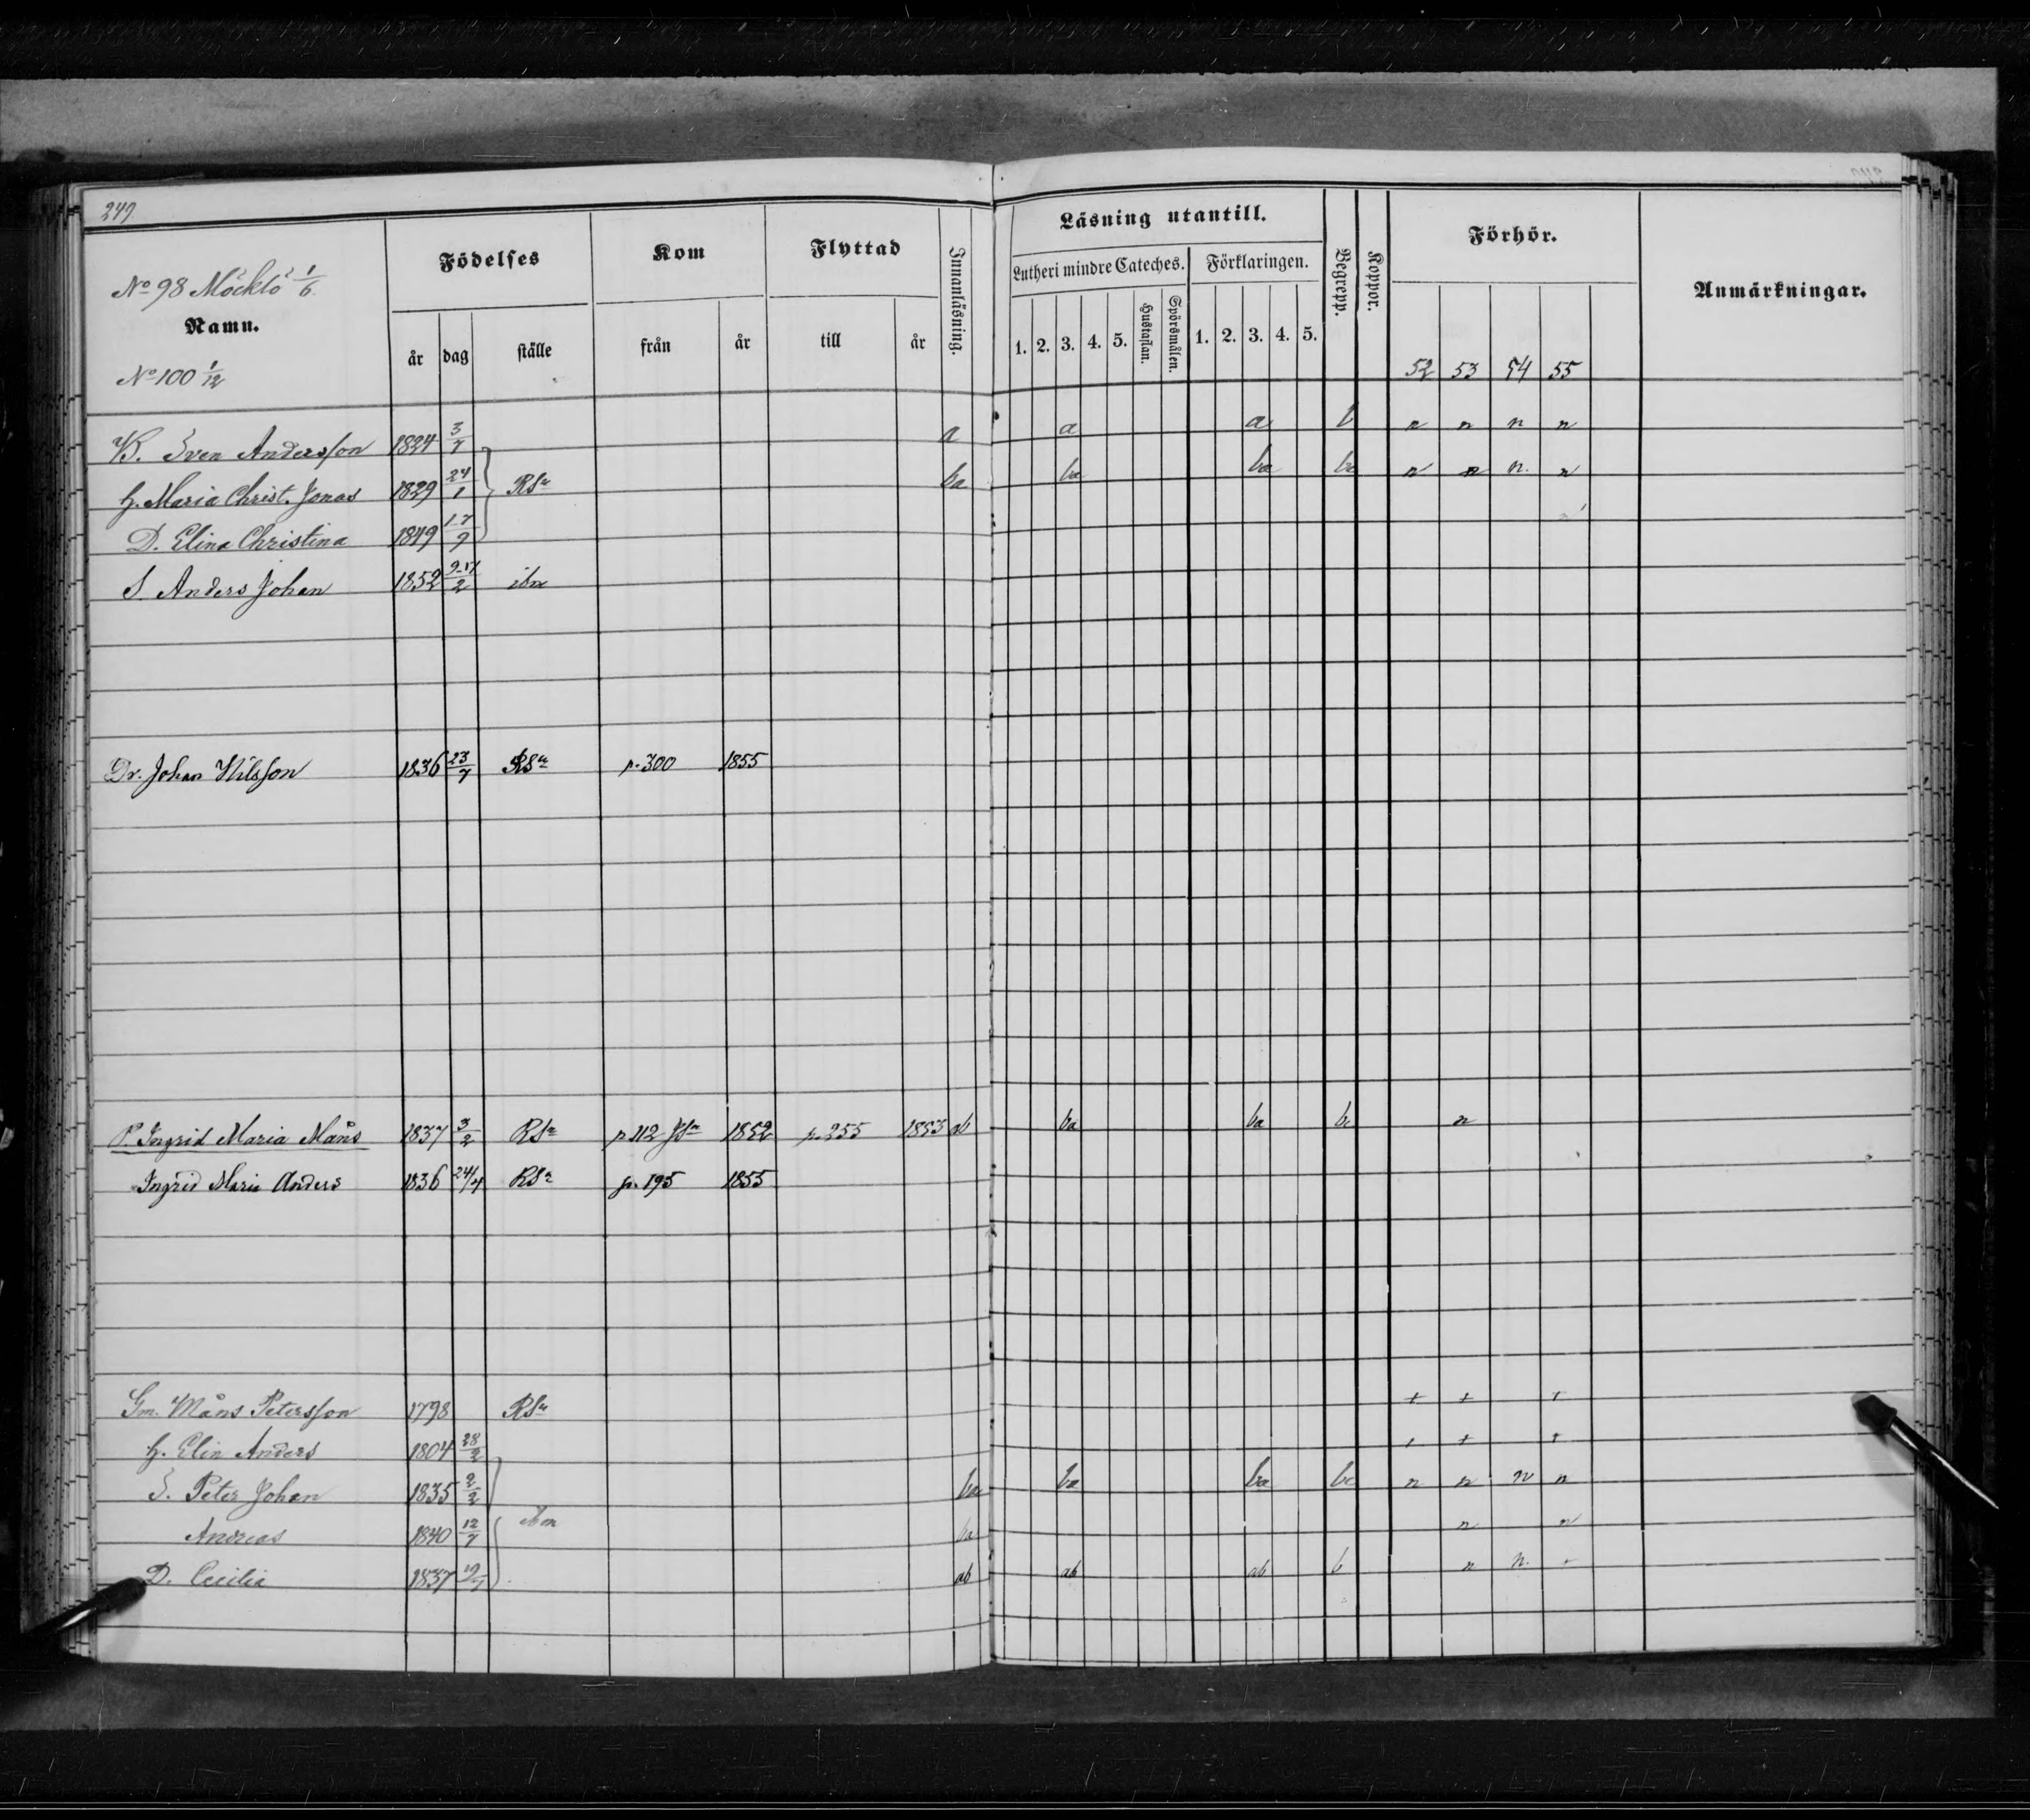 249
No 98 Möcklö 1/6
Namn.
No 100 1/12
Födelses
år dag ställe
Kom
från år
Flyttad
till år
Innanläsning.
Läsning utantill.
Lutheri mindre Cateches. Förklaringen.
1. 2. 3. 4. 5. Hustaflan. Spörsmålen. 1. 2. 3. 4. 5.
Begrepp. Koppor.
Förhör.
52 53 54 55
Anmärkningar.
B. Sven Andersson 1824 3/7 a a a b n n n n
H. Maria Christ. Jonas 1829 24/1 RSn ba ba ba bc n n n. n
D. Elina Christina 1849 17/9
S. Anders Johan 1852 2/2 ibm
Dr. Johan Nilsson 1836 23/7 RSn p. 300 1855
P. Ingrid Maria Måns 1837 3/2 RSn p 112 JSn 1852 p. 255 1853 ab ba ba bc n
Ingrid Maria Anders 1836 24/4 RSn p. 195 1855
Gm. Måns Petersson 1798 RSn + + +
H. Elin Anders 1804 28/2 + + +
S. Peter Johan 1835 2/2 ba ba ba bc n n n n
Andreas 1840 12/7 ibm ba n n
D. Cecilia 1837 19/7 ab ab ab b n n. +